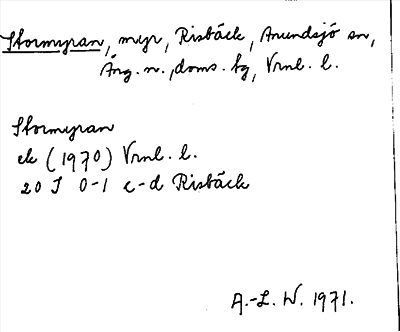 Stormyran, myr, Risbäck, Anundsjö sn,
Ång. n., doms. tg, Vrnl. l.
Stormyran
ek (1970) Vrnl. l.
20 J 0-1 c-d Risbäck
A.-L. W. 1971.